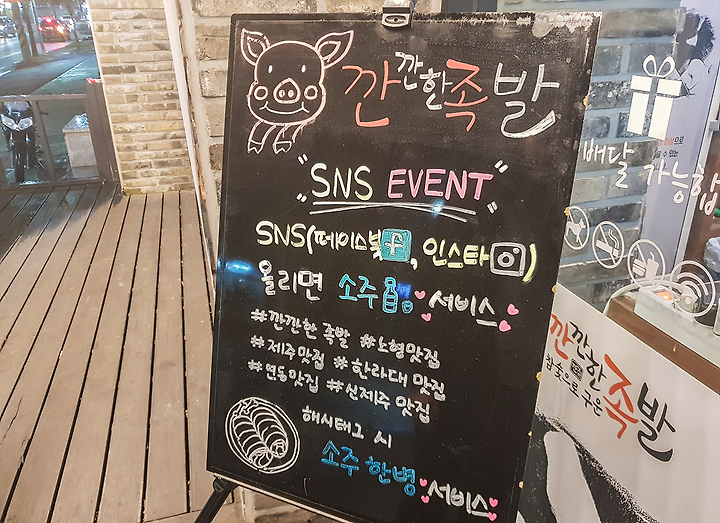 깐깐한족발
"SNS EVENT"
SNS(페이스북f, 인스타)
올리면 소주 서비스
#깐깐한 족발 #노형맛집
#제주맛집 #한라대 맛집
#연동맛집 #신제주 맛집
해시태그 시
소주 한병 서비스
배달 가능합
깐깐한족발
참숯으로 구운